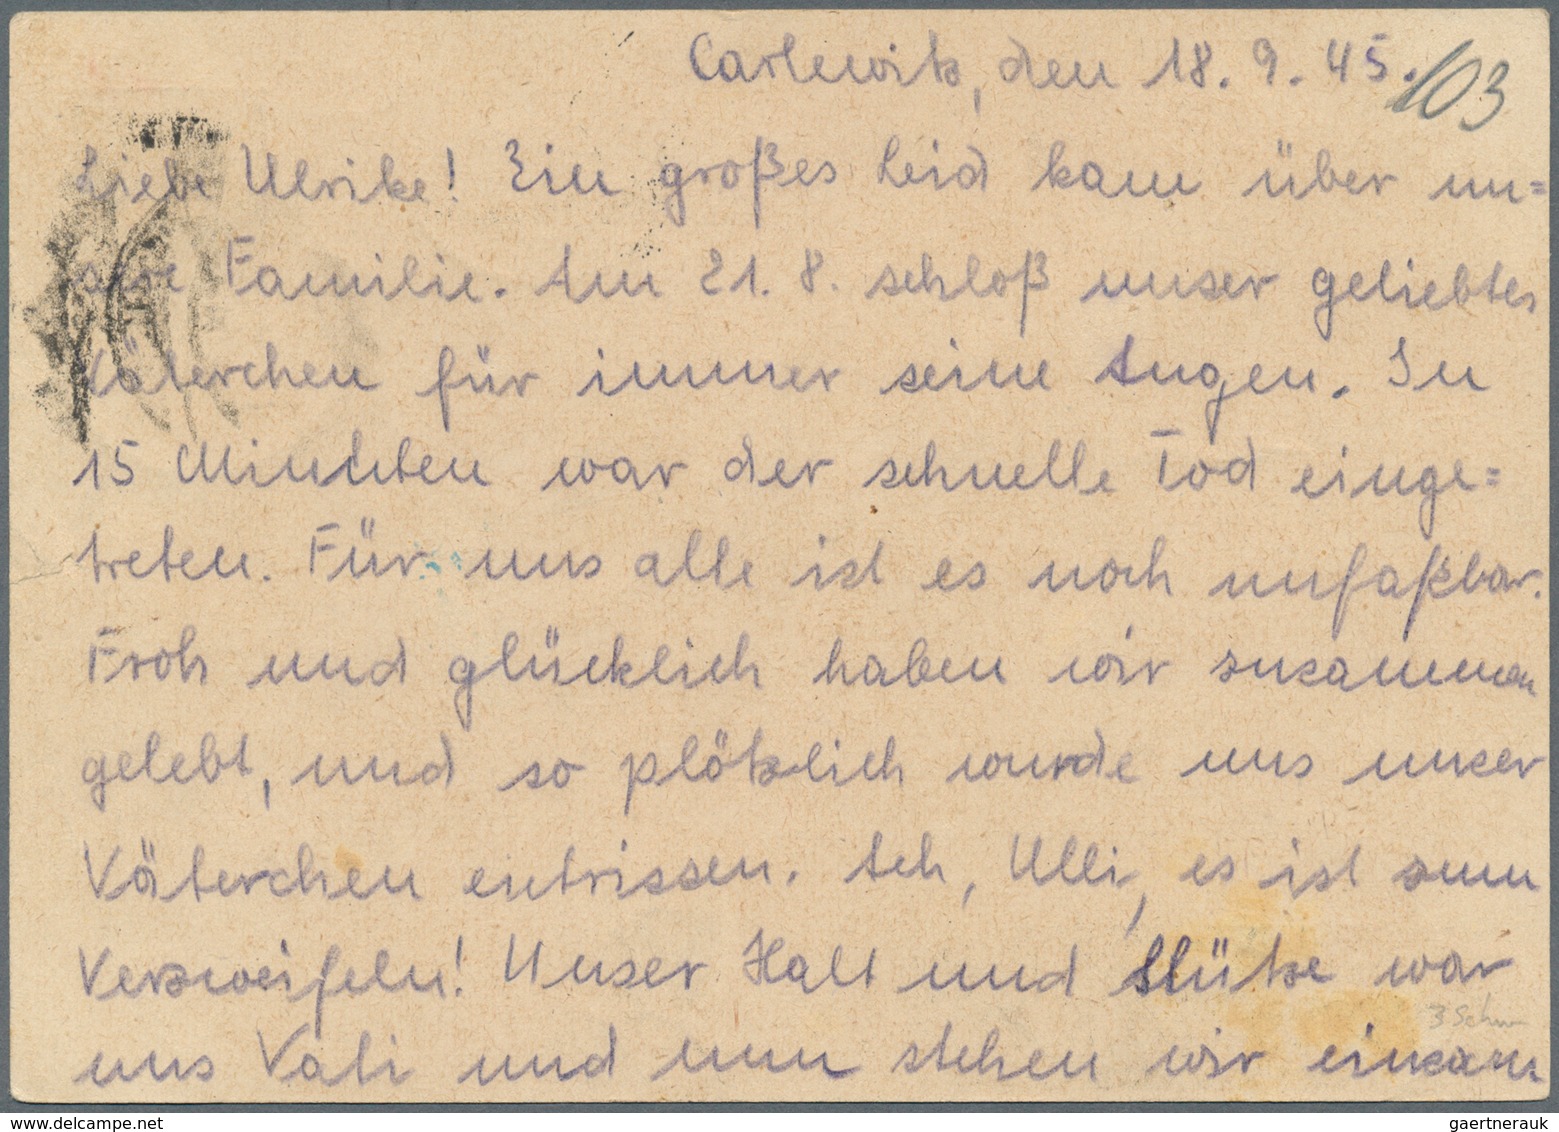 Carlewitz, den 18. 9. 45.
103
Liebe Ulrike! Ein großes Leid kam über un=
sere Familie. Am 21. 8. schloß unser geliebtes
Väterchen für immer seine Augen. In
15 Minuten war der schnelle Tod einge=
treten. Für uns alle ist es noch unfaßbar.
Froh und glücklich haben wir zusammen
gelebt, und so plötzlich wurde uns unser
Väterchen entrissen. Ach, Ulli, es ist zum
Verzweifeln! Unser Halt und Stütze war
3 Schw
uns Vati und nun stehen wir einsam
delcampe.net
gaertnerauk